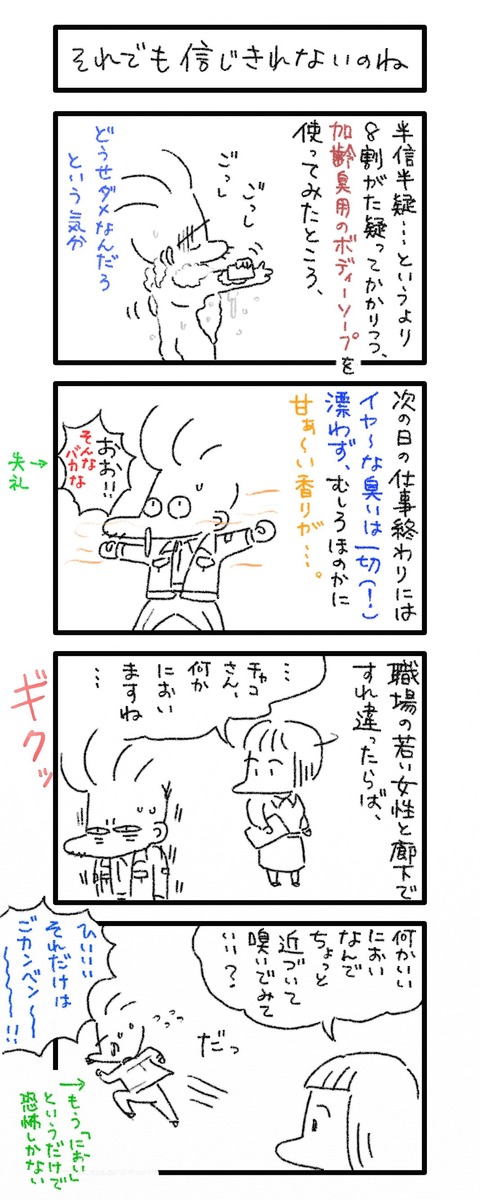 それでも信じきれないのね
半信半疑…というより
8割がた疑ってかかりつつ、
加齢臭用のボディーソープを
使ってみたところ、
ごっし
ごっし
どうせダメなんだろ
という気分
次の日の仕事終わりには
イヤ〜な臭いは一切(!)
漂わず、むしろほのかに
甘ぁ〜い香りが…。
おお!!
そんな
バカな
失礼→
職場の若い女性と廊下で
すれ違ったらば、
…
チャコ
さん、
何か
におい
ますね
…
ギクッ
何かいい
におい
なんで
ちょっと
近づいて
嗅いでみて
いい?
だっ
ひいいい
それだけは
ごカンベン〜〜〜!!
→もう「におい」
というだけで
恐怖しかない